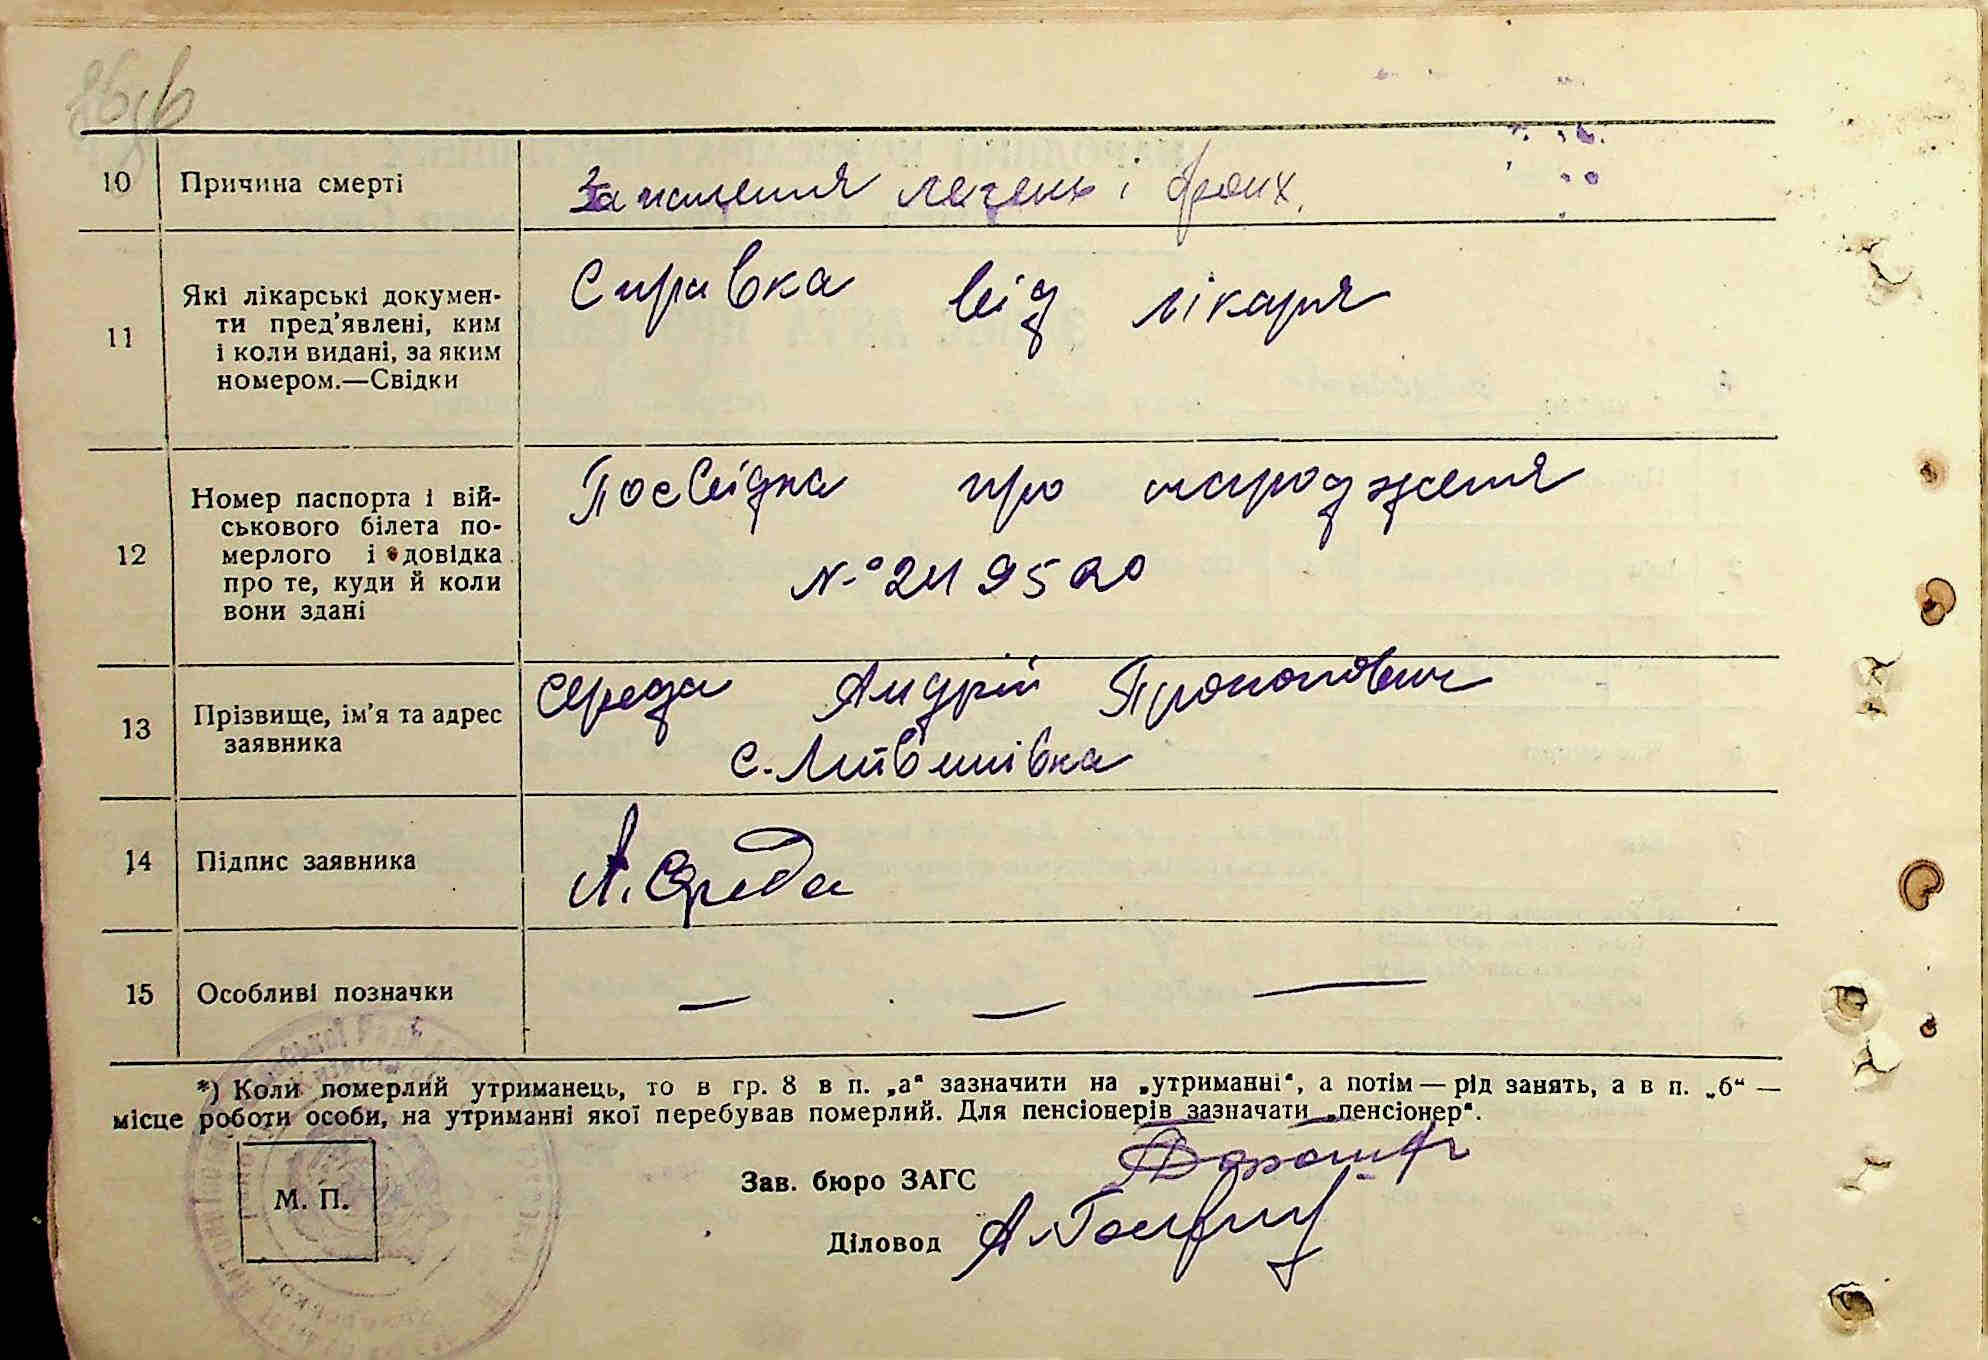 10 Причина смерті Запалення легень і бронх.
11 Які лікарські докумен-
ти пред’явлені, ким
і коли видані, за яким
номером.—Свідки
Справка від лікаря
12 Номер паспорта і вій-
ськового білета по-
мерлого і довідка
про те, куди й коли
вони здані
Посвідка про народження
№ 249520
13 Прізвище, ім’я та адрес
заявника
Середа Андрій Прокопович
с. Литвинівка
14 Підпис заявника А. Середа
15 Особливі позначки — — —
*) Коли померлий утриманець, то в гр. 8 в п. „а“ зазначити на „утриманні“, а потім — рід занять, а в п. „б“ —
місце роботи особи, на утриманні якої перебував померлий. Для пенсіонерів зазначати „пенсіонер“.
М. П.
Зав. бюро ЗАГС
Діловод